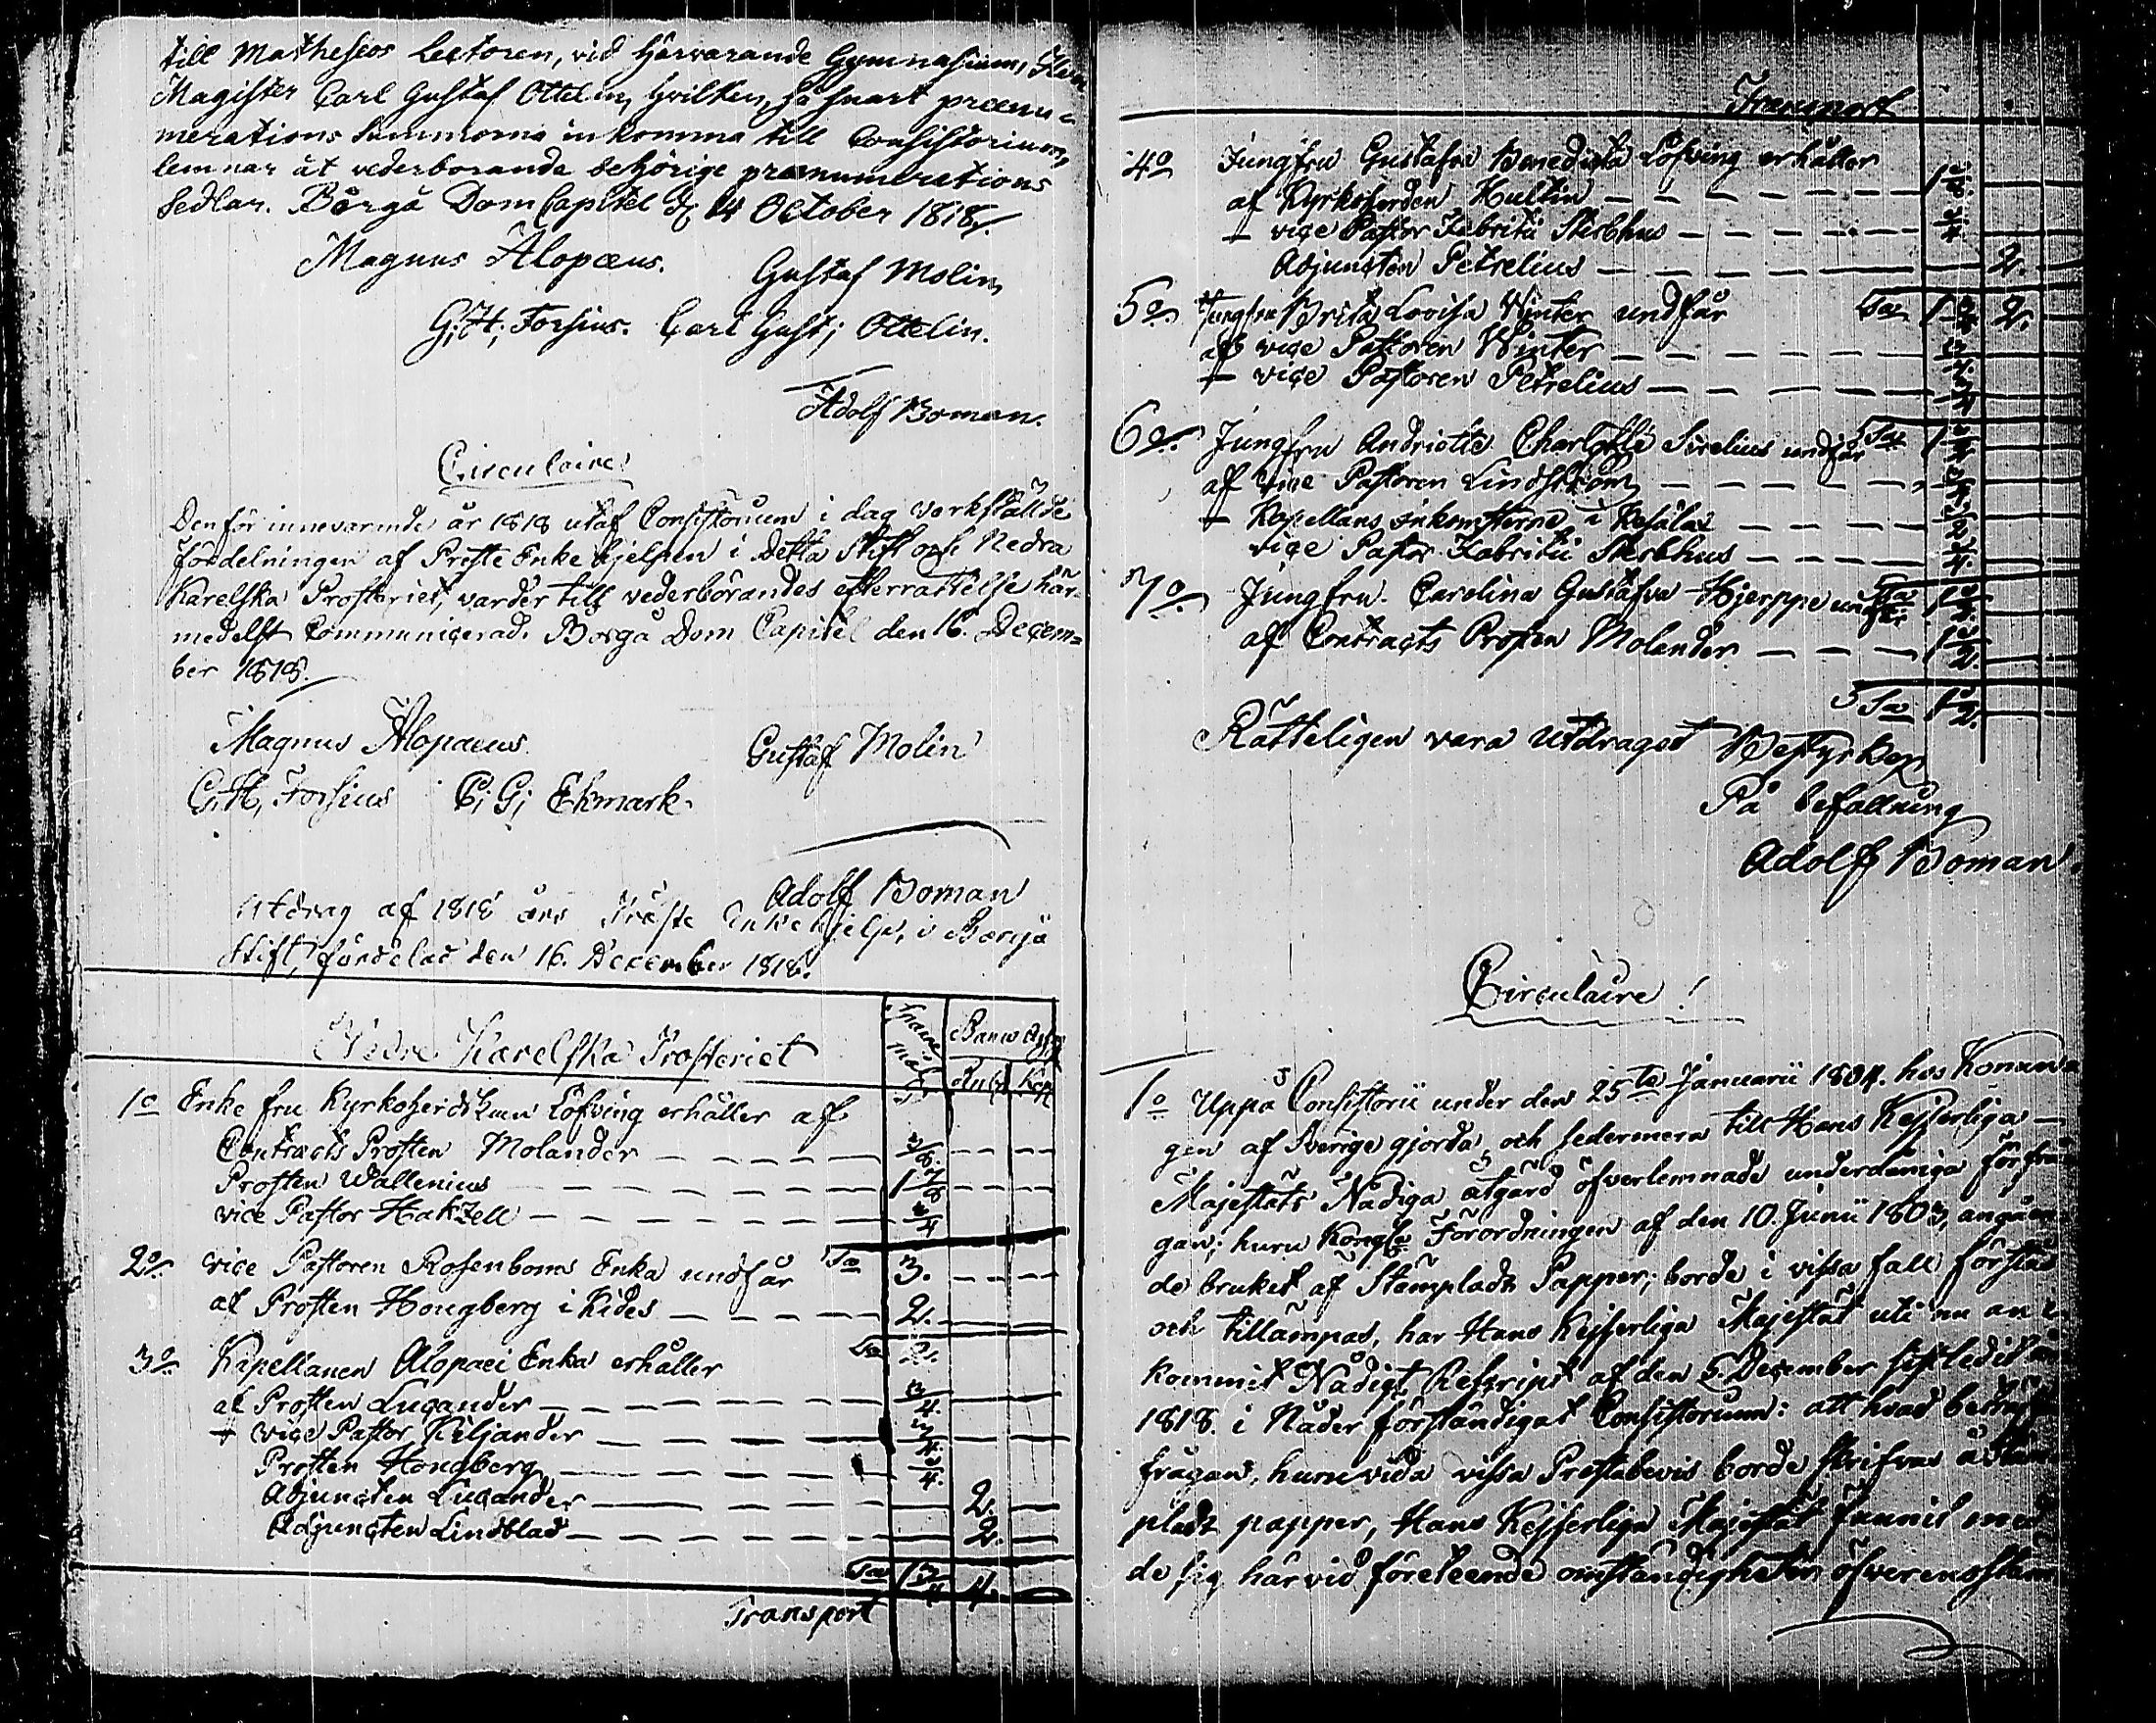 till Matheseos Lectoren, vid härvarande Gymnasium,
Magister Carl Gustaf Ottelin, hvilken, så snart prænu=
merations Summorna inkomma till Consistorium,
lemnar åt vederborande behörige prænumerations
Sedlar. Borgå DomCapitel d. 14 October 1818.
Magnus Alopæus.
Gustaf Molin
G; H; Forsius. Carl Gust; Ottelin.
Adolf Boman.
Circulaire!
Den för innevarande år 1818 utaf Consistorium i dag verkstälde
fördelningen af Prste Enke hjelpen i detta Stift och Nedra
Karelska Prosteriet, varder till vederbörandes efterrättelse här=
medelst Communicerad. Borgå Dom Capitel den 16. Decem=
ber 1818.
Magnus Alopaeus
Gustaf Molin
G; H; Forsius C; G; Ekmark.
Adolf Boman
Utdrag af 1818 års Präste Enkehjelp, i Borgå
Stift, fördelad den 16. December 1818.
Nedre Karelska Prosteriet
Spanemål
Banco
Rub. Kop.
1o Enke fru Kyrkoherdskan Löfving erhåller af
Contracts Prosten Molander
Prosten Wallenius
vice Pastor Hakzell 3/4
2o vice Pastoren Rosenboms Enka undfår Sa 3.
af Prosten Hougberg i Kides 2.
3o Kapellanen Alopaei Enka erhåller Sa 2.
af Prosten Lucander 3/4.
+ vice Pastor Kiljander
Prosten Hougberg
Adjuncten Lucander 2.
Adjuncten Lindblad 2.
Sa 4.
Transport
Transport
4o Jungfru Gustafva Benedicta Löfving erhåller
af Kyrkoherden Hultin
+ vice Pastor Fabritii Sterbhus
Adjuncten Petrelius 2.
5o Jungfru Brita Lovisa Winter undfår Sa 2.
af vice Pastoren Winter
+ vice Pastoren Petrelius
6o Jungfru Andriette Charlotte Sirelius undfår Sa
af vice Pastoren Lindström
+ Kapellans inkomsterne i Kesälax
vice Pastor Fabritii Sterbhus
7o Jungfru Carolina Gustafva Hjerppe undfår Sa
af Contracts Prosten Molander 1 1/2.
Sa 1 1/2.
Rätteligen vara utdraget Bestyrker
På befallning
Adolf Boman.
Circulaire!
1o Uppå Consistorii under den 25te Januarii 1804. hos Konun
gen af Sverige gjorda, och sedermera till Hans Kejserliga
Majestäts Nådiga åtgärd öfverlemnade underdåniga förfrå
gan; huru Kongla Förordningen af den 10. Junii 1803, angåen
de bruket af Stämpladt Papper; borde i vissa fall förstås
och tillämpas, har Hans Kejserliga Majestät uti nu an
kommit Nådigt Rescript af den 5. December sistledit år
1818. i Nåder förständigat Consistorium: att hvad beträf
frågan, huruvida vissa Prestabevis borde skrifvas å Stäm
pladt papper, Hans Kejserliga Majestät funnit med
de sig härvid företeende omständigheter öfverensstäm